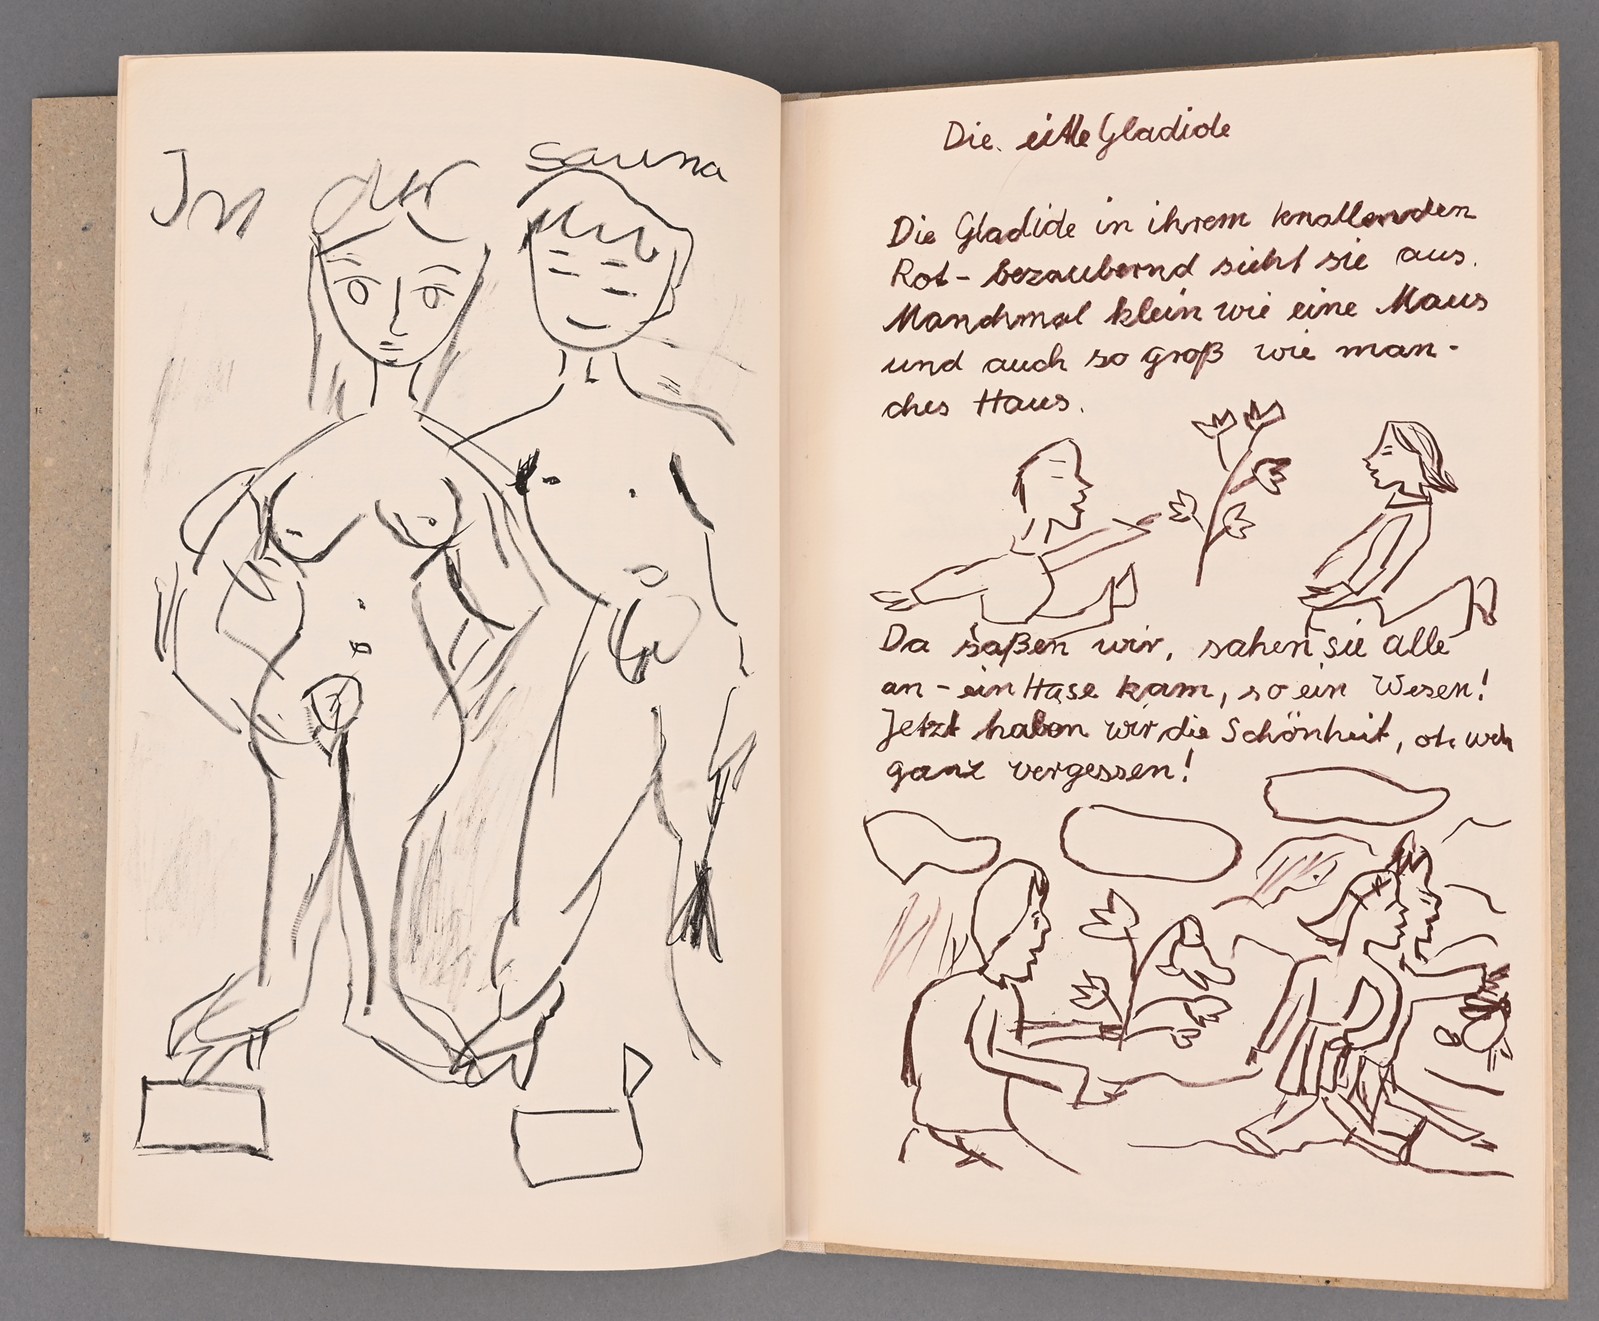 In der sauna
Die eitle Gladiole
Die Gladide in ihrem knallenden
Rot - bezaubernd sieht sie aus.
Manchmal klein wie eine Maus
und auch so groß wie man-
ches Haus.
Da saßen wir, sahen sie alle
an - ein Hase kam, so ein Wesen!
Jetzt haben wir die Schönheit, oh weh
ganz vergessen!